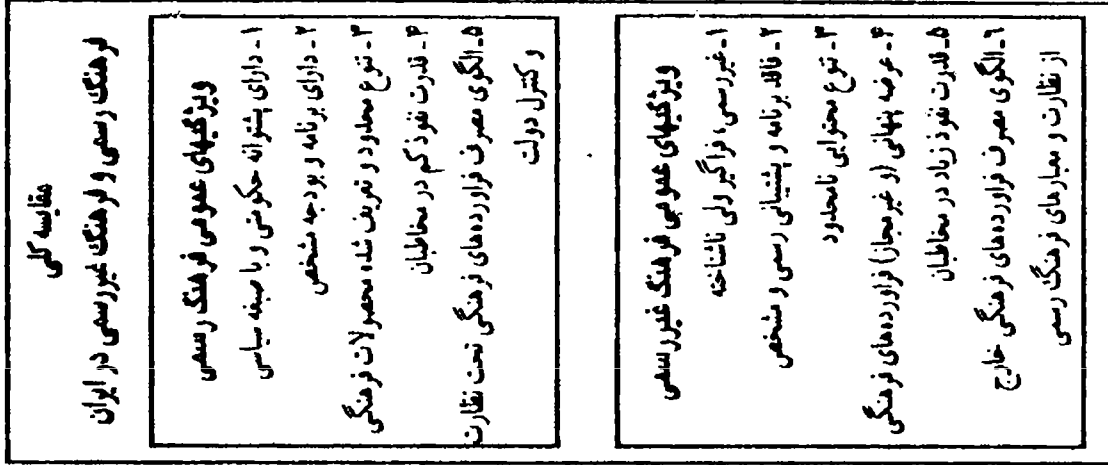 مقایسه کلی
فرهنگ رسمی و فرهنگ غیررسمی در ایران
ویژگیهای عمومی فرهنگ رسمی
۱ - دارای پشتوانه حکومتی و با صبغه سیاسی
۲ - دارای برنامه و بودجه مشخص
۳ - تنوع محدود و تعریف شده محصولات فرهنگی
۴ - قدرت نفوذ کم در مخاطبان
۵ - الگوی مصرف فراورده‌های فرهنگی تحت نظارت
و کنترل دولت
ویژگیهای عمومی فرهنگ غیررسمی
۱ - غیررسمی، فراگیر ولی ناشناخته
۲ - فاقد برنامه و پشتیبانی رسمی و مشخص
۳ - تنوع محتوایی نامحدود
۴ - عرضه پنهانی (و غیرمجاز) فراورده‌های فرهنگی
۵ - قدرت نفوذ زیاد در مخاطبان
۶ - الگوی مصرف فراورده‌های فرهنگی خارج
از نظارت و معیارهای فرهنگ رسمی